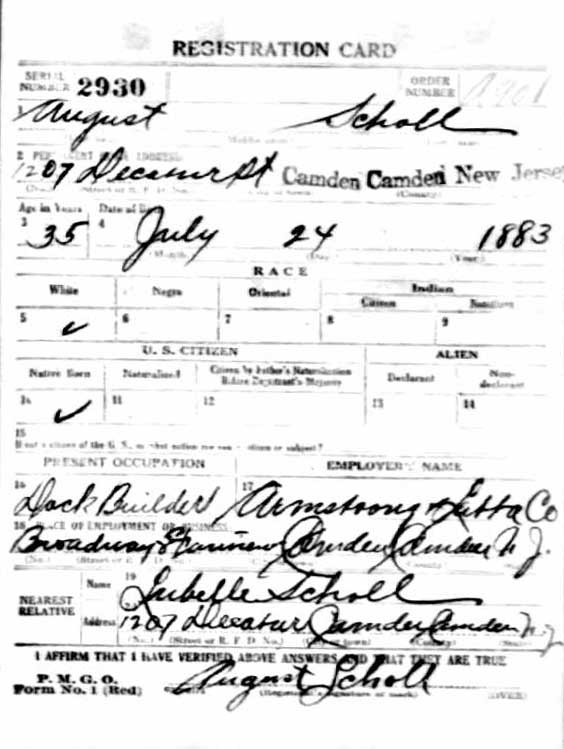 REGISTRATION CARD
SERIAL NUMBER 2930 ORDER NUMBER
1 August Scholl
2 PERMANENT HOME ADDRESS:
1207 Decatur St Camden Camden New Jersey
(No.) (Street or R. F. D. No.) (City or town) (County)
Age in Years Date of Birth
3 35 4 July 24 1883
(Month) (Day) (Year)
RACE
White Negro Oriental Indian
Citizen Noncitizen
5 ✓ 6 7 8 9
U. S. CITIZEN ALIEN
Native Born Naturalized Citizen by Father's Naturalization Before Registrant's Majority Declarant Non-declarant
10 ✓ 11 12 13 14
15
If not a citizen of the U. S., of what nation are you a citizen or subject?
PRESENT OCCUPATION EMPLOYER'S NAME
16 Dock Builder 17 Armstrong & Co
18 PLACE OF EMPLOYMENT OR BUSINESS:
Broadway & Camden Camden N. J.
(No.) (Street or R. F. D. No.) (County)
NEAREST RELATIVE Name 19 Scholl
Address 1207 Decatur Camden Camden N. J.
(No.) (Street or R. F. D. No.) (City or town) (County) (State)
I AFFIRM THAT I HAVE VERIFIED ABOVE ANSWERS AND THAT THEY ARE TRUE
P. M. G. O.
Form No. 1 (Red) August Scholl
(Registrant's signature or mark) (OVER)